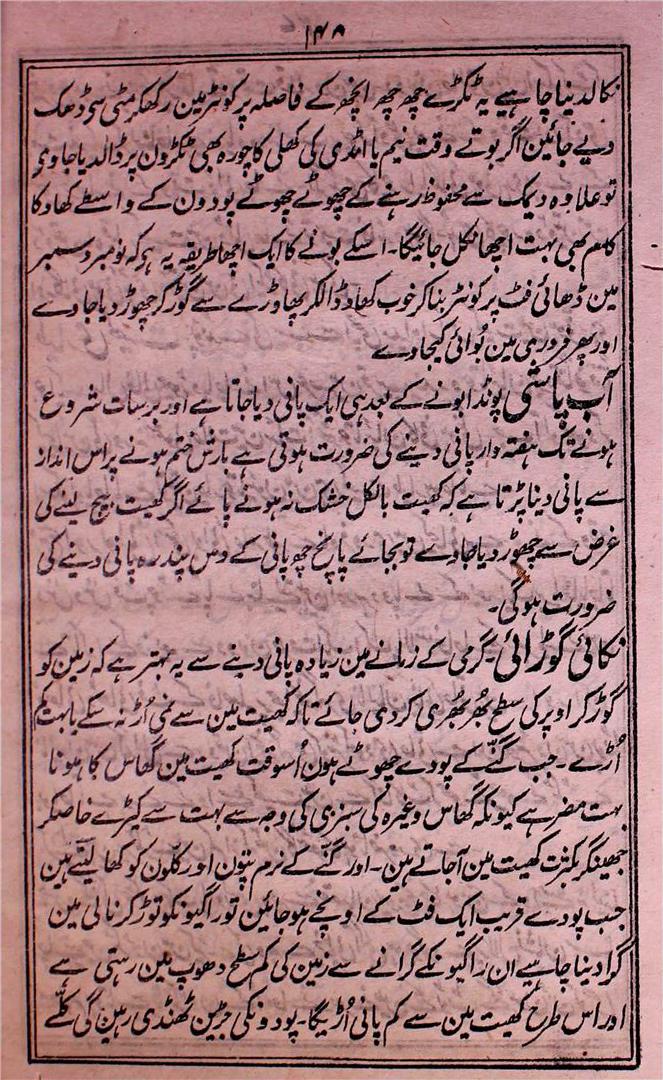 ۱۴۸
نکالدینا چاہیے یہ ٹکڑے چھ چھ انچھ کے فاصلہ پر کونٹر مین رکھکر مٹی سی ڈھک
دیے جائین اگر بوتے وقت نیم یا انڈی کی کھلی کا چورہ بھی ٹکڑون پر ڈالدیا جاوی
تو علاوہ دیمک سے محفوظ رہنے کے چھوٹے چھوٹے پودون کے واسطے کھاد کا
کام بھی بہت اچھا نکل جائیگا۔ اسکے بونے کا ایک اچھا طریقہ یہ ہی کہ نومبر دسمبر
مین ڈھائی فٹ پر کونٹر بنا کر خوب کھاد ڈالکر پھاوڑے سے گوڑ کر چھوڑ دیا جاوے
اور پھر فروری مین بُوائی کیجاوے
آب پاشی پونڈا بونے کے بعد ہی ایک پانی دیا جاتا ہے اور برسات شروع
ہونے تک ہفتہ وار پانی دینے کی ضرورت ہوتی ہے بارش ختم ہونے پر اس انداز
سے پانی دینا پڑتا ہے کہ کھیت بالکل خشک نہ ہونے پائے اگر کھیت بیج لینے کی
غرض سے چھوڑ دیا جاوے تو بجائے پانچ چھ پانی کے دس پندرہ پانی دینے کی
ضرورت ہوگی۔
نکائی گوڑائی۔ گرمی کے زمانے مین زیادہ پانی دینے سے یہ بہتر ہے کہ زمین کو
گوڑ کر اوپر کی سطح بھُر بھُری کر دی جائے تاکہ کھیت مین سے نمی اُڑ نہ سکے یا بہت کم
اُڑے۔ جب گنّے کے پودے چھوٹے ہون اُسوقت کھیت مین گھاس کا ہونا
بہت مضر ہے کیونکہ گھاس وغیرہ کی سبزی کی وجہ سے بہت سے کیڑے خاصکر
جھینگر بکثرت کھیت مین آجاتے ہین۔ اور گنّے کے نرم پتون اور کلّون کو کھا لیتے ہین
جب پودے قریب ایک فٹ کے اونچے ہو جائین تو راگیونکو توڑ کر نالی مین
گرا دینا چاہیے ان راگیونکے گرانے سے زمین کی کم سطح دھوپ مین رہتی ہے
اور اس طرح کھیت مین سے کم پانی اُڑیگا۔ پودونکی جڑین ٹھنڈی رہین گی کلّے